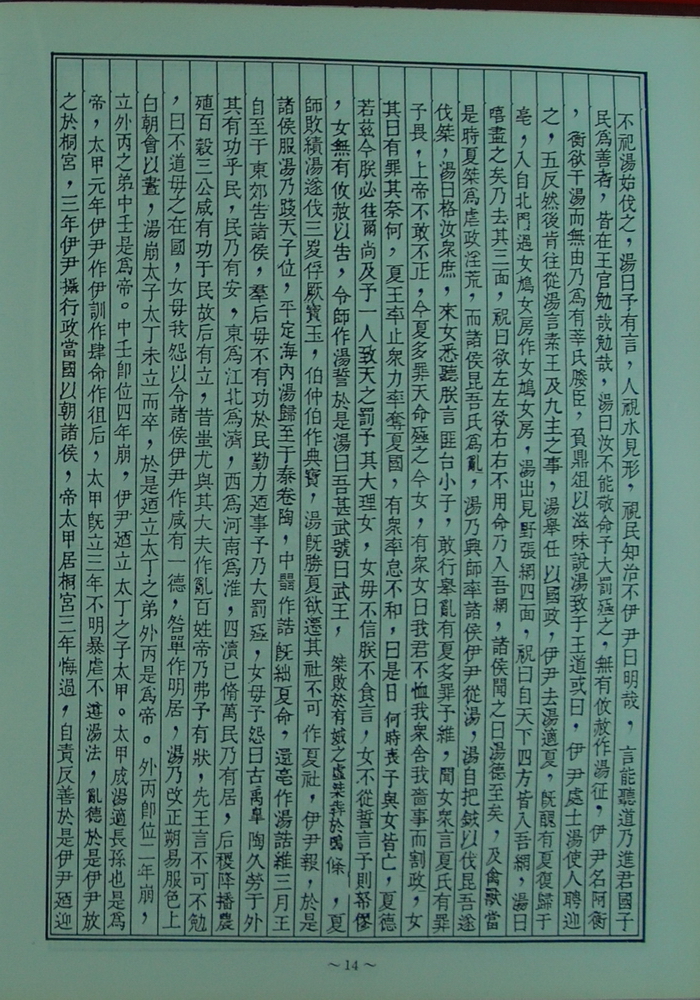 不祀湯始伐之，湯曰予有言，人視水見形，視民知治不伊尹曰明哉，言能聽道乃進君國子
民爲善者，皆在王官勉哉勉哉，湯曰汝不能敬命予大罰殛之，無有攸赦作湯征，伊尹名阿衡
，衡欲干湯而無由乃爲有莘氏媵臣，負鼎俎以滋味說湯致于王道或曰，伊尹處士湯使人聘迎
之，五反然後肯往從湯言素王及九主之事，湯舉任以國政，伊尹去湯適夏，旣醜有夏復歸于
亳，入自北門遇女鳩女房作女鳩女房，湯出見野張網四面，祝曰自天下四方皆入吾網，湯曰
嘻盡之矣乃去其三面，祝曰欲左左欲右右不用命乃入吾網，諸侯聞之曰湯德至矣，及禽獸當
是時夏桀爲虐政淫荒，而諸侯昆吾氏爲亂，湯乃興師率諸侯伊尹從湯，湯自把鉞以伐昆吾遂
伐桀，湯曰格汝衆庶，來女悉聽朕言匪台小子，敢行舉亂有夏多罪予維，聞女衆言夏氏有罪
子畏，上帝不敢不正，今夏多罪天命殛之今女，有衆女曰我君不恤我衆舍我嗇事而割政，女
其曰有罪其奈何，夏王率止衆力率奪夏國，有衆率怠不和，曰是日何時喪予與女皆亡，夏德
若玆今朕必往爾尚及予一人致天之罰予其大理女，女毋不信朕不食言，女不從誓言予則帑僇
，女無有攸赦以告，令師作湯誓於是湯曰吾甚武號曰武王，桀敗於有娀之虛桀犇於鳴條，夏
師敗績湯遂伐三㚇俘厥寶玉，伯仲伯作典寶，湯旣勝夏欲遷其社不可作夏社，伊尹報，於是
諸侯服湯乃踐天子位，平定海內湯歸至于泰卷陶，中𤳹作誥旣絀夏命，還亳作湯誥維三月王
自至于東郊告諸侯，羣后毋不有功於民勤力廼事予乃大罰殛，女毋予怨曰古禹臯陶久勞于外
其有功乎民，民乃有安，東爲江北爲濟，西爲河南爲淮，四瀆已脩萬民乃有居，后稷降播農
殖百穀三公咸有功于民故后有立，昔蚩尤與其大夫作亂百姓帝乃弗予有狀，先王言不可不勉
，曰不道毋之在國，女毋我怨以令諸侯伊尹作咸有一德，咎單作明居，湯乃改正朔易服色上
白朝會以晝，湯崩太子太丁未立而卒，於是廼立太丁之弟外丙是爲帝。外丙卽位二年崩，
立外丙之弟中壬是爲帝。中壬卽位四年崩，伊尹廼立太丁之子太甲。太甲成湯適長孫也是爲
帝，太甲元年伊尹作伊訓作肆命作徂后，太甲旣立三年不明暴虐不遵湯法，亂德於是伊尹放
之於桐宮，三年伊尹攝行政當國以朝諸侯，帝太甲居桐宮三年悔過，自責反善於是伊尹廼迎
～14～